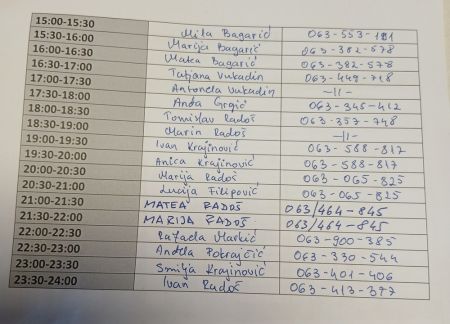 15:00-15:30 Mila Bagarić 063-553-191
15:30-16:00 Marija Bagarić 063-382-578
16:00-16:30 Maka Bagarić 063-382-578
16:30-17:00 Tatjana Vukadin 063-449-718
17:00-17:30 Antonela Vukadin -||-
17:30-18:00 Anđa Grgić 063-345-412
18:00-18:30 Tomislav Radoš 063-357-748
18:30-19:00 Marin Radoš -||-
19:00-19:30 Ivan Krajinović 063-588-817
19:30-20:00 Anica Krajinović 063-588-817
20:00-20:30 Marija Radoš 063-065-825
20:30-21:00 Lucija Filipović 063-065-825
21:00-21:30 MATEA RADOŠ 063/464-845
21:30-22:00 MARIJA RADOŠ 063/464-845
22:00-22:30 Rafaela Markić 063-900-385
22:30-23:00 Anđela Pokrajčić 063-330-544
23:00-23:30 Smilja Krajinović 063-401-406
23:30-24:00 Ivan Radoš 063-413-377